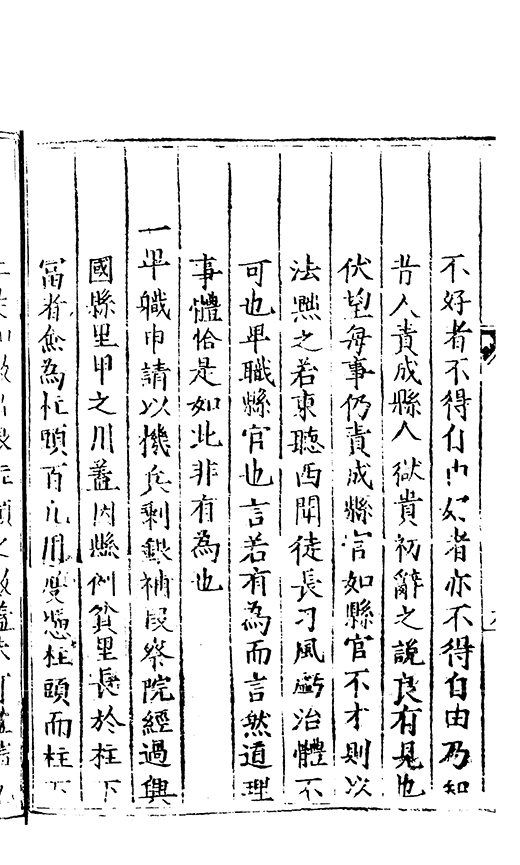 不好者不得自由好者亦不得自由乃知
昔人責成縣人獄貴初辭之說良有見也
伏望每事仍責成縣官如縣官不才則以
法黜之若東聽西聞徒長刁風虧冶體不
可也卑職縣官也言若有為而言然道理
事體恰是如此非有為也
一卑職申請以機兵剩銀補叚察院經過興
國縣里甲之用葢因縣例貧里長於柱下
富者僉為柱頭百凡用度憑柱頭而柱下